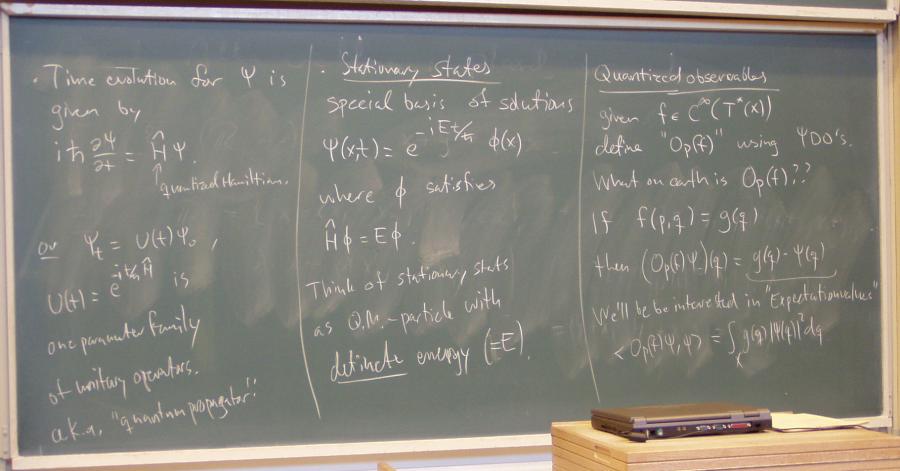 · Time evolution for Ψ is
given by
iħ ∂Ψ/∂t = Ĥ Ψ.
↑
quantized Hamiltonian.
or Ψₜ = U(t)Ψ₀,
U(t) = e^{-it/ħ Ĥ} is
one parameter family
of unitary operators.
a.k.a. "quantum propagator".
· Stationary states
special basis of solutions
Ψ(x,t) = e^{-iEt/ħ} ϕ(x)
where ϕ satisfies
Ĥϕ = Eϕ.
Think of stationary stats
as Q.M.-particle with
definite energy (=E).
Quantized observables
given f ∈ C^∞(T*(X))
define "Op(f)" using ΨDO's.
What on earth is Op(f)??
If f(p,q) = g(q)
then (Op(f)Ψ)(q) = g(q)·Ψ(q)
We'll be be interested in "Expectation values"
<Op(f)Ψ,Ψ> = ∫_X g(q)|Ψ(q)|²dq